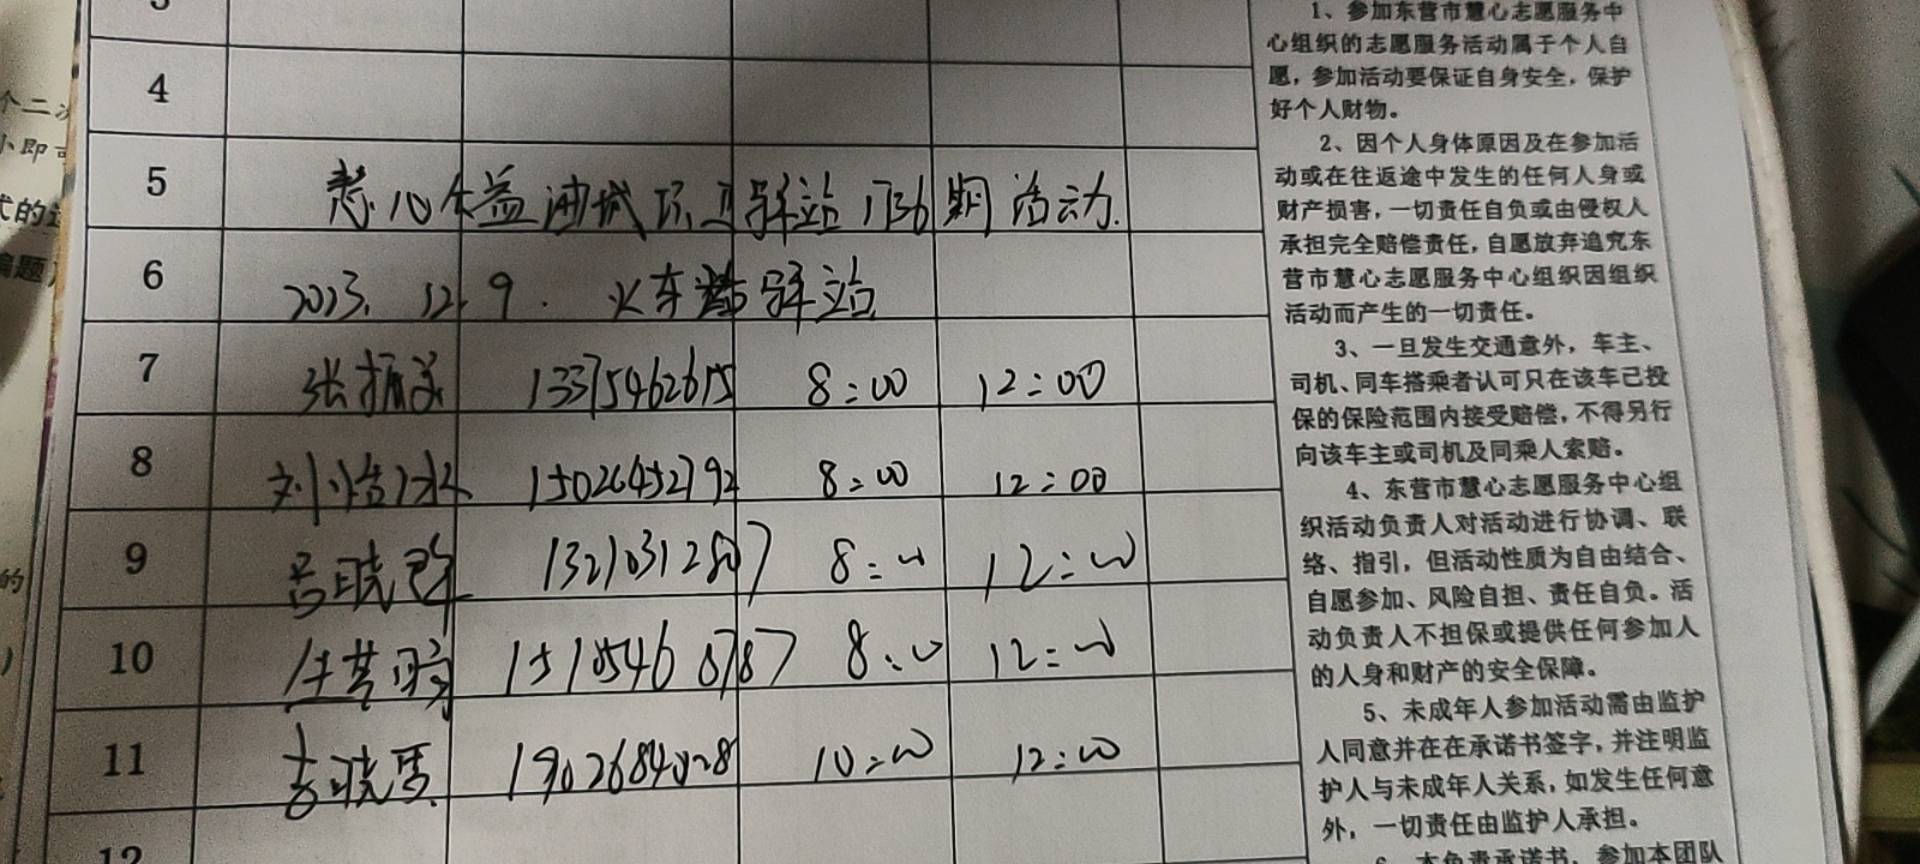 3
4
5 慧心公益油城环卫驿站1736期活动.
6 2023. 12. 9. 火车站驿站
7 张振 13375462615 8:00 12:00
8 刘 15026452792 8:00 12:00
9 吕晓 13210312807 8:00 12:00
10 任 15105460787 8:00 12:00
11 晓 19026840028 10:00 12:00
12
1、参加东营市慧心志愿服务中
心组织的志愿服务活动属于个人自
愿，参加活动要保证自身安全，保护
好个人财物。
2、因个人身体原因及在参加活
动或在往返途中发生的任何人身或
财产损害，一切责任自负或由侵权人
承担完全赔偿责任，自愿放弃追究东
营市慧心志愿服务中心组织因组织
活动而产生的一切责任。
3、一旦发生交通意外，车主、
司机、同车搭乘者认可只在该车已投
保的保险范围内接受赔偿，不得另行
向该车主或司机及同乘人索赔。
4、东营市慧心志愿服务中心组
织活动负责人对活动进行协调、联
络、指引，但活动性质为自由结合、
自愿参加、风险自担、责任自负。活
动负责人不担保或提供任何参加人
的人身和财产的安全保障。
5、未成年人参加活动需由监护
人同意并在在承诺书签字，并注明监
护人与未成年人关系，如发生任何意
外，一切责任由监护人承担。
6、本免责承诺书，参加本团队